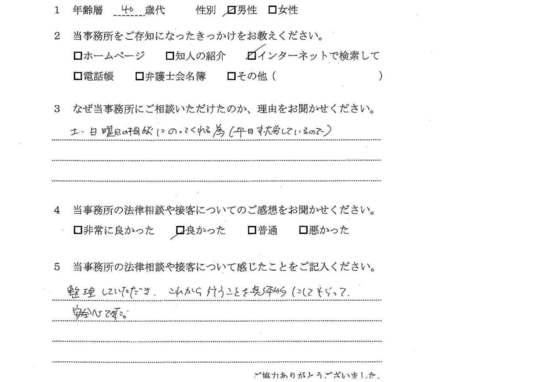 1 年齢層 40 歳代 性別 ☑男性 □女性
2 当事務所をご存知になったきっかけをお教えください。
□ホームページ □知人の紹介 ☑インターネットで検索して
□電話帳 □弁護士会名簿 □その他（ ）
3 なぜ当事務所にご相談いただけたのか、理由をお聞かせください。
土・日曜日の相談にのってくれる為（平日は大分しているので）
4 当事務所の法律相談や接客についてのご感想をお聞かせください。
□非常に良かった ☑良かった □普通 □悪かった
5 当事務所の法律相談や接客について感じたことをご記入ください。
整理していただき、これから行うことを明確にしてもらって、
安心です。
ご協力ありがとうございました。